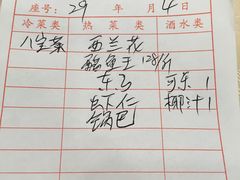 座号: 29 年 月 4 日
冷菜类 热菜类 酒水类
八宝菜 西兰花
鱼王 128/斤
东 可乐 1
虾仁 椰汁 1
锅巴